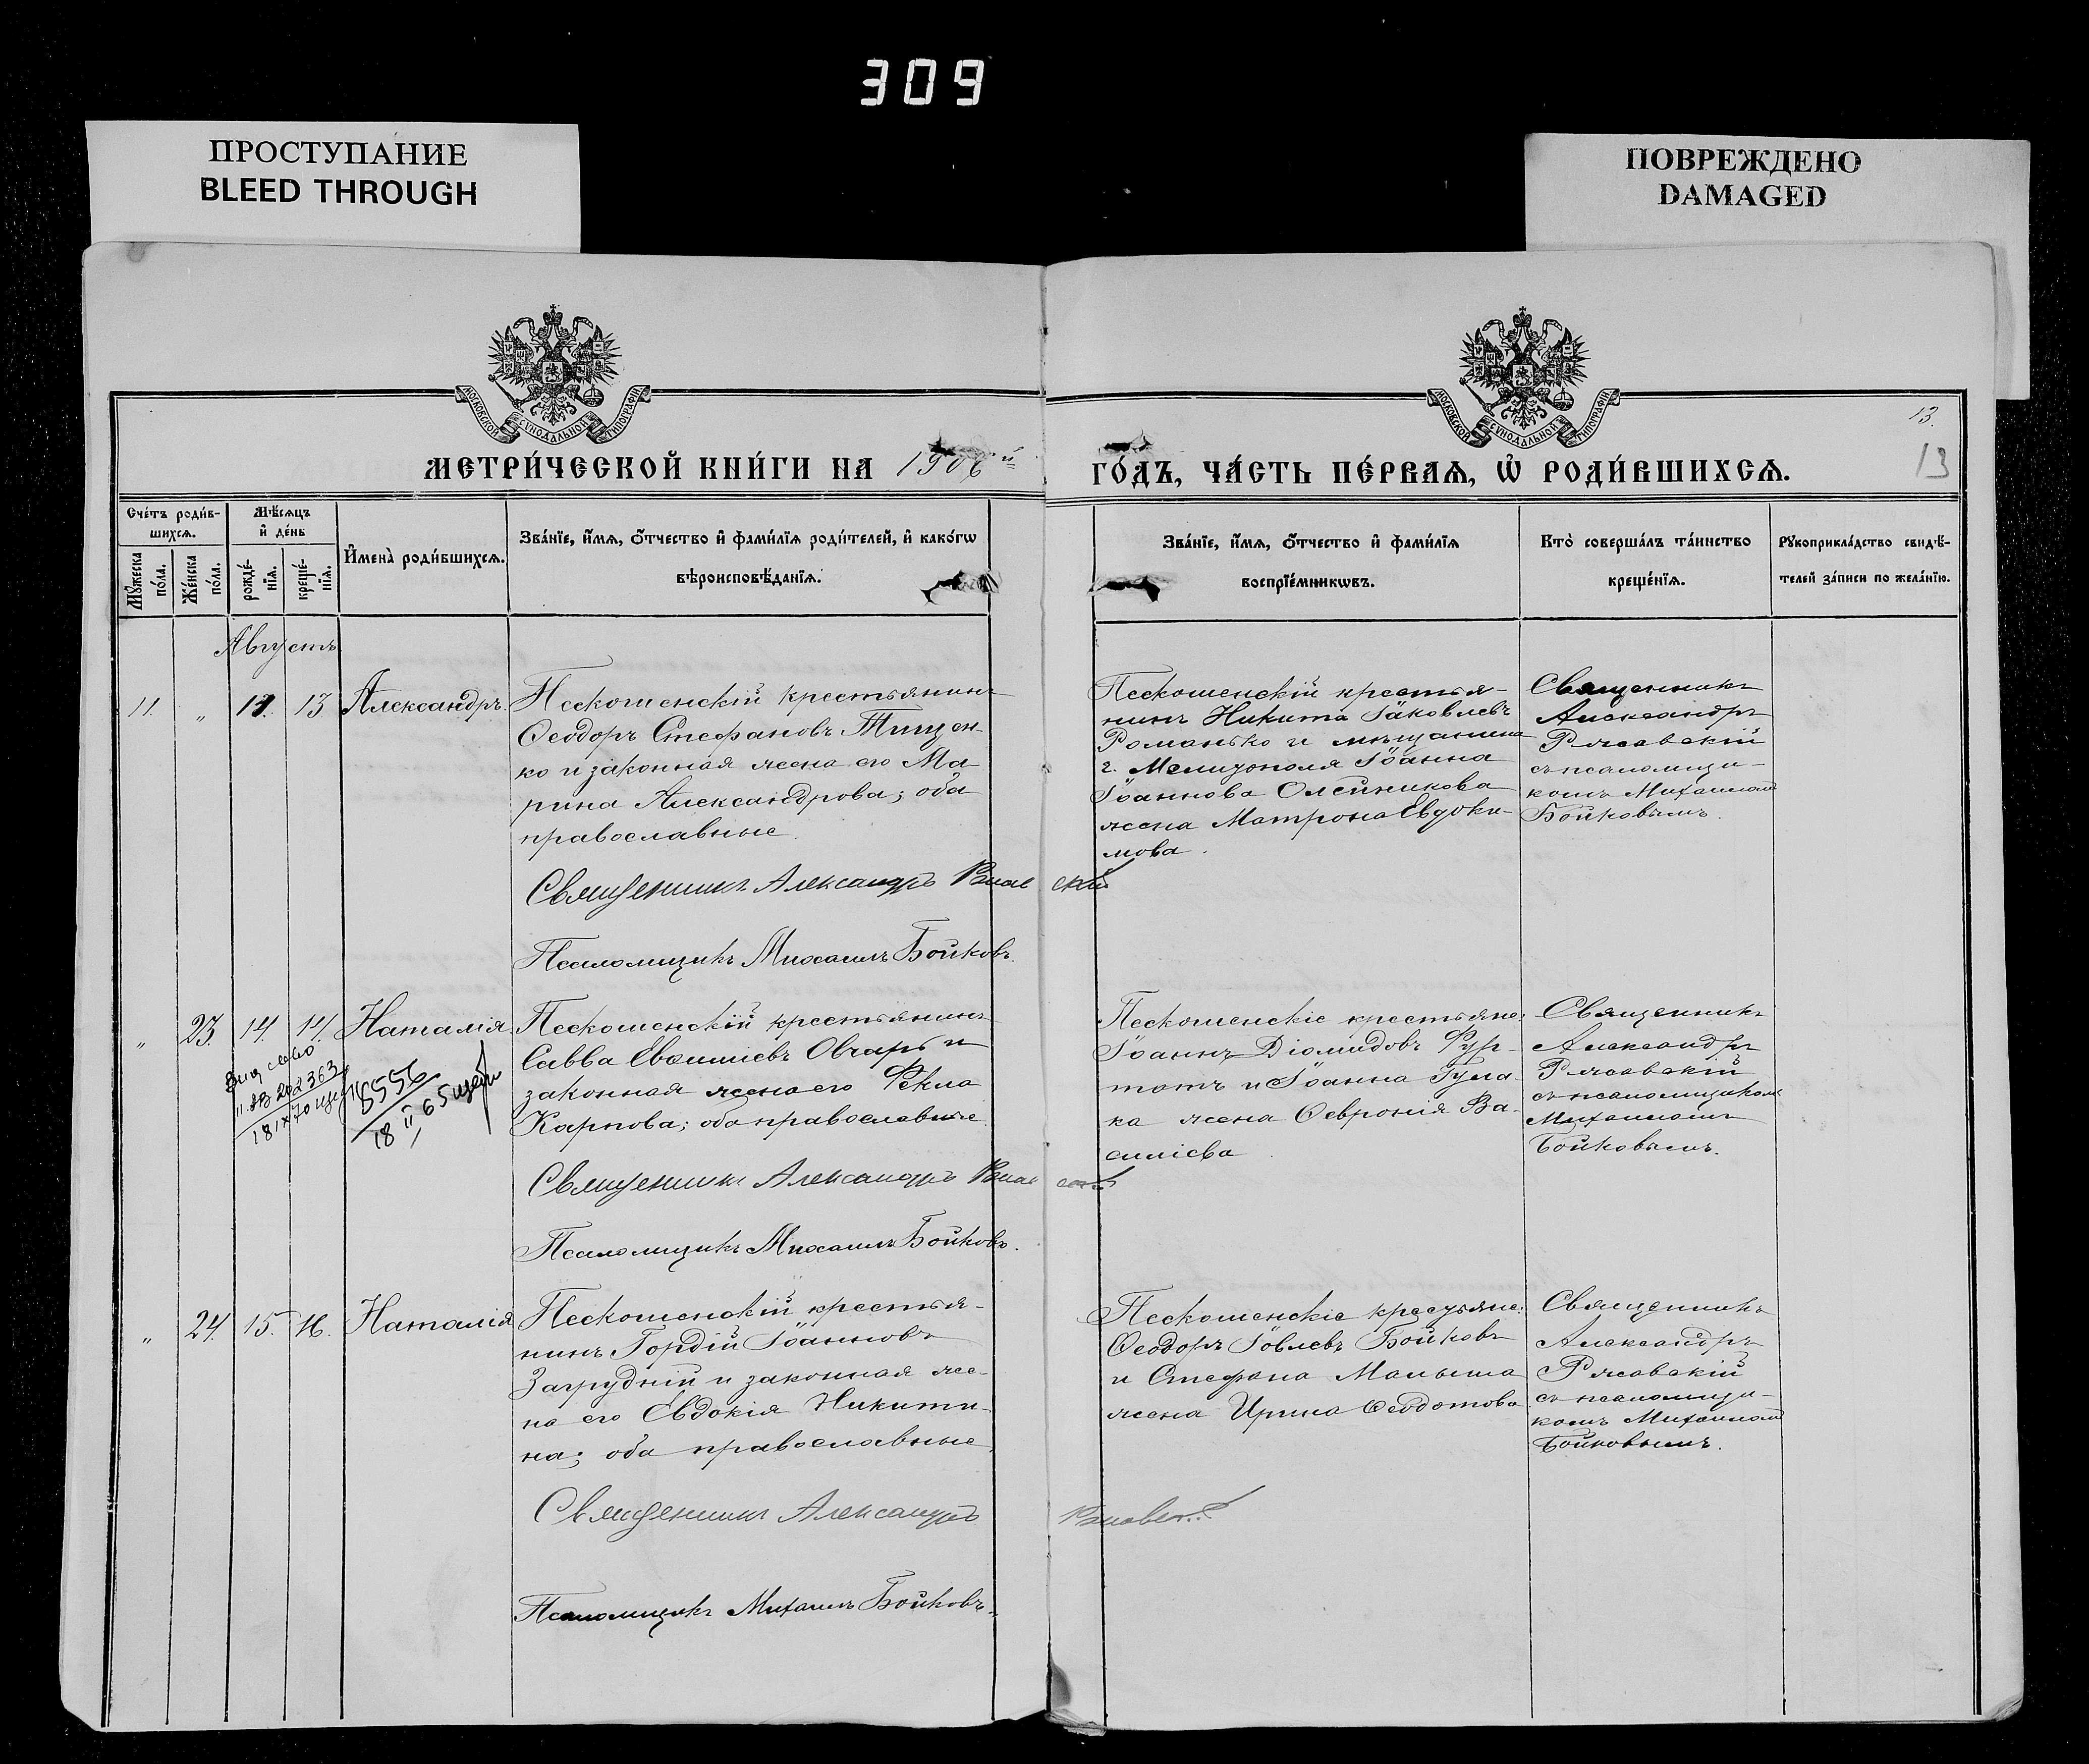 309
ПРОСТУПАНИЕ
BLEED THROUGH
ПОВРЕЖДЕНО
DAMAGED
МОСКОВСКОЙ СѴНОДАЛЬНОЙ ТИПОГРАФІИ
МОСКОВСКОЙ СѴНОДАЛЬНОЙ ТИПОГРАФІИ
13.
13
МЕТРИ́ЧЕСКОЙ КНИ́ГИ НА 1906й
ГО́ДЪ, ЧА́СТЬ ПЕ́РВАѦ, Ѡ҆ РОДИ́ВШИХСѦ.
Сче́тъ роди́в-
шихсѧ.
Мѣ́сѧцъ
и҆ де́нь
Мꙋ́жеска
по́ла.
Же́нска
по́ла.
рожде́-
нїѧ.
креще́-
нїѧ.
И҆мена̀ роди́вшихсѧ.
Зва́нїе, и҆́мѧ, ѻ҆́тчество и҆ фами́лїѧ роди́телей, и҆ како́гѡ
вѣроисповѣ́данїѧ.
Зва́нїе, и҆́мѧ, ѻ҆́тчество и҆ фами́лїѧ
воспрїе́мникѡвъ.
Кто̀ соверша́лъ та́инство
креще́нїѧ.
Рꙋкоприкла́дство свидѣ́-
телей за́писи по жела́нїю.
Августъ
11. „ 13 Александръ.
Пескошенскій крестьянинъ
Ѳеодоръ Стефановъ Тищен-
ко и законная жена его Ма-
рина Александрова; оба
православные.
Священникъ Александръ
Псаломщикъ Михаилъ Бойковъ.
Пескошенскій крестья-
нинъ Никита Іаковлевъ
Романько и мѣщанина
г. Мелитополя Іоанна
Іоаннова Олейникова
жена Матрона Евдоки-
мова.
Священникъ
Александръ
Рясавскій
съ псаломщи-
комъ Михаиломъ
Бойковымъ.
„ 23. 14. 14. Наталія.
18 IX 70
8556
18 II 65
Пескошенскій крестьянинъ
Савва Овчаръ и
законная жена его Ѳекла
Карпова; оба православные.
Священникъ Александръ
Псаломщикъ Михаилъ Бойковъ.
Пескошенскіе крестьяне:
Іоаннъ Діомидовъ
и Іоанна Гула-
ка жена Ѳевронія Ва-
силіева.
Священникъ
Александръ
Рясавскій
съ псаломщикомъ
Михаиломъ
Бойковымъ.
„ 24. 15. 16. Наталія
Пескошенскій крестья-
нинъ Гордій Іоанновъ
Загрудній и законная же-
на его Евдокія Никити-
на; оба православные
Священникъ Александръ
Псаломщикъ Михаилъ Бойковъ.
Пескошенскіе крестьяне:
Ѳеодоръ Іовлевъ Бойковъ
и Стефана Малыша
жена Ирина Ѳеодотова
Священникъ
Александръ
Рясавскій
съ псаломщи-
комъ Михаиломъ
Бойковымъ.